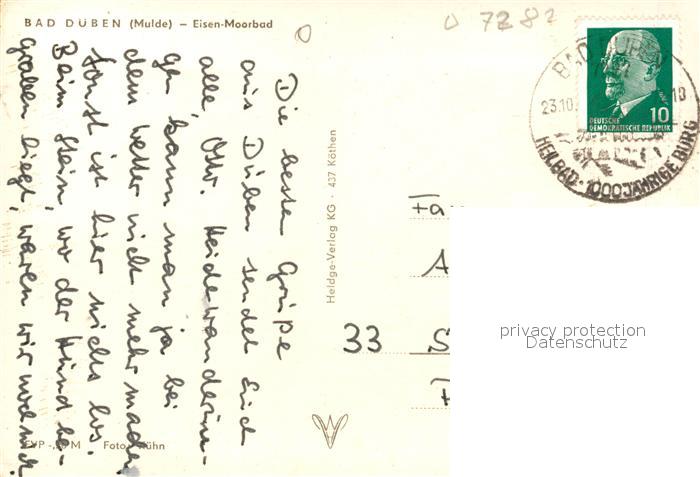 BAD DÜBEN (Mulde) – Eisen-Moorbad
0 7282
Die besten Grüße
aus Düben sendet Euch
alle, Ottr. Heidewanderun-
gen kann man ja bei
dem Wetter nicht mehr machen
sonst ist hier nichts los.
Beim Stein, wo der Hund be-
graben liegt, waren wir noch nicht
EVP -,20 M Foto: Kühn
Heldge-Verlag KG · 437 Köthen
BAD DÜBEN
23.10. 18
HEILBAD · 1000 JÄHRIGE BURG
10
DEUTSCHE
DEMOKRATISCHE REPUBLIK
Fa
A
33 S
privacy protection
Datenschutz